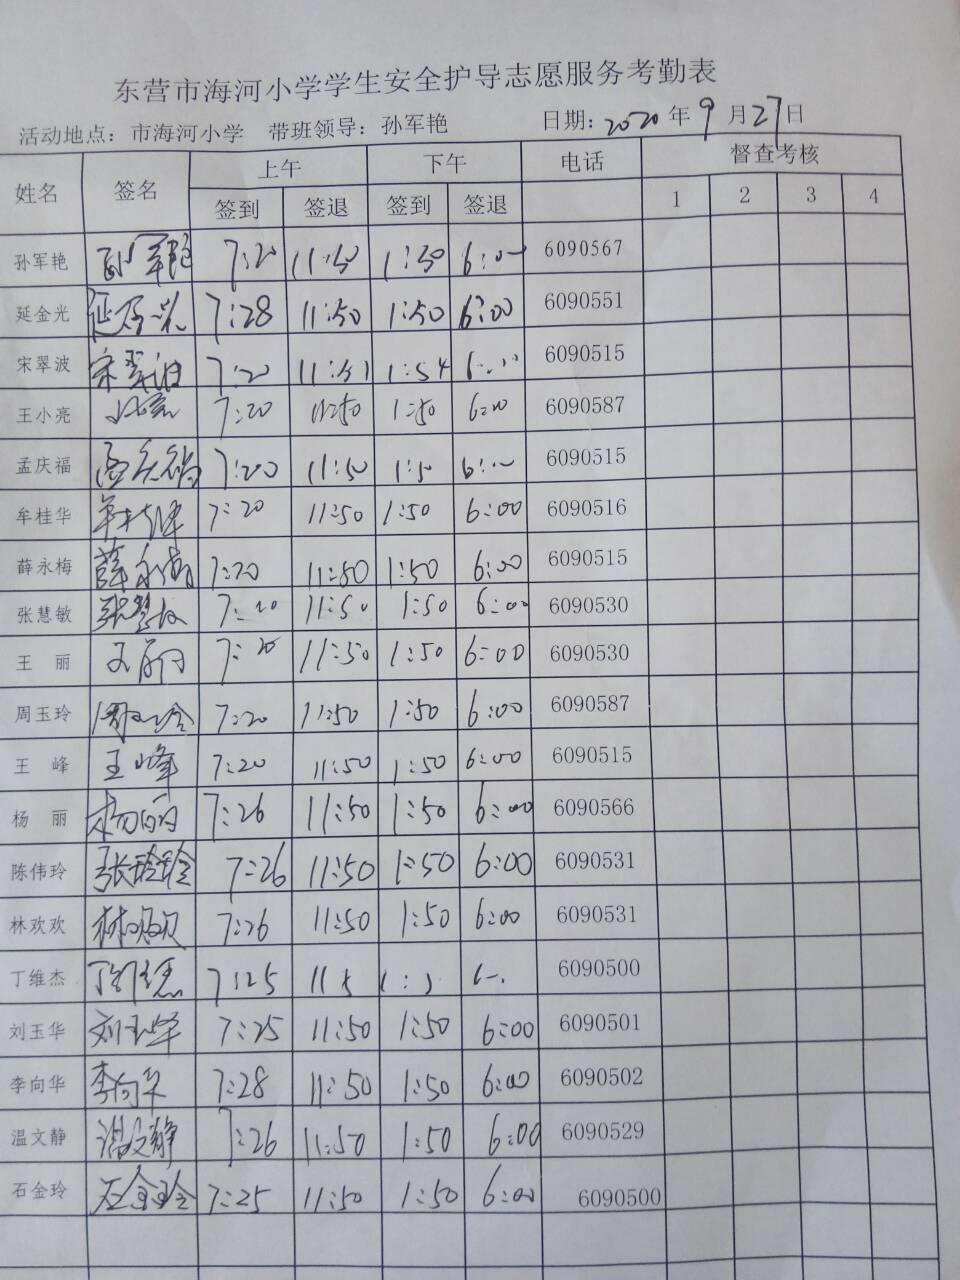 东营市海河小学学生安全护导志愿服务考勤表
活动地点：市海河小学 带班领导：孙军艳 日期：2020年9月27日
姓名 签名 上午 下午 电话 督查考核
签到 签退 签到 签退 1 2 3 4
孙军艳 孙军艳 7:20 11:50 1:50 6:00 6090567
延金光 延金光 7:28 11:50 1:50 6:00 6090551
宋翠波 宋翠波 7:20 11:51 1:54 6:00 6090515
王小亮 7:20 11:50 1:50 6:00 6090587
孟庆福 孟庆福 7:20 11:50 1:50 6:00 6090515
牟桂华 牟桂华 7:20 11:50 1:50 6:00 6090516
薛永梅 薛永梅 7:20 11:50 1:50 6:00 6090515
张慧敏 张慧敏 7:20 11:50 1:50 6:00 6090530
王 丽 王丽 7:20 11:50 1:50 6:00 6090530
周玉玲 周玉玲 7:20 11:50 1:50 6:00 6090587
王 峰 王峰 7:20 11:50 1:50 6:00 6090515
杨 丽 杨丽 7:26 11:50 1:50 6:00 6090566
陈伟玲 7:26 11:50 1:50 6:00 6090531
林欢欢 林欢欢 7:26 11:50 1:50 6:00 6090531
丁维杰 7:25 6090500
刘玉华 刘玉华 7:25 11:50 1:50 6:00 6090501
李向华 李向华 7:28 11:50 1:50 6:00 6090502
温文静 温文静 7:26 11:50 1:50 6:00 6090529
石金玲 石金玲 7:25 11:50 1:50 6:00 6090500